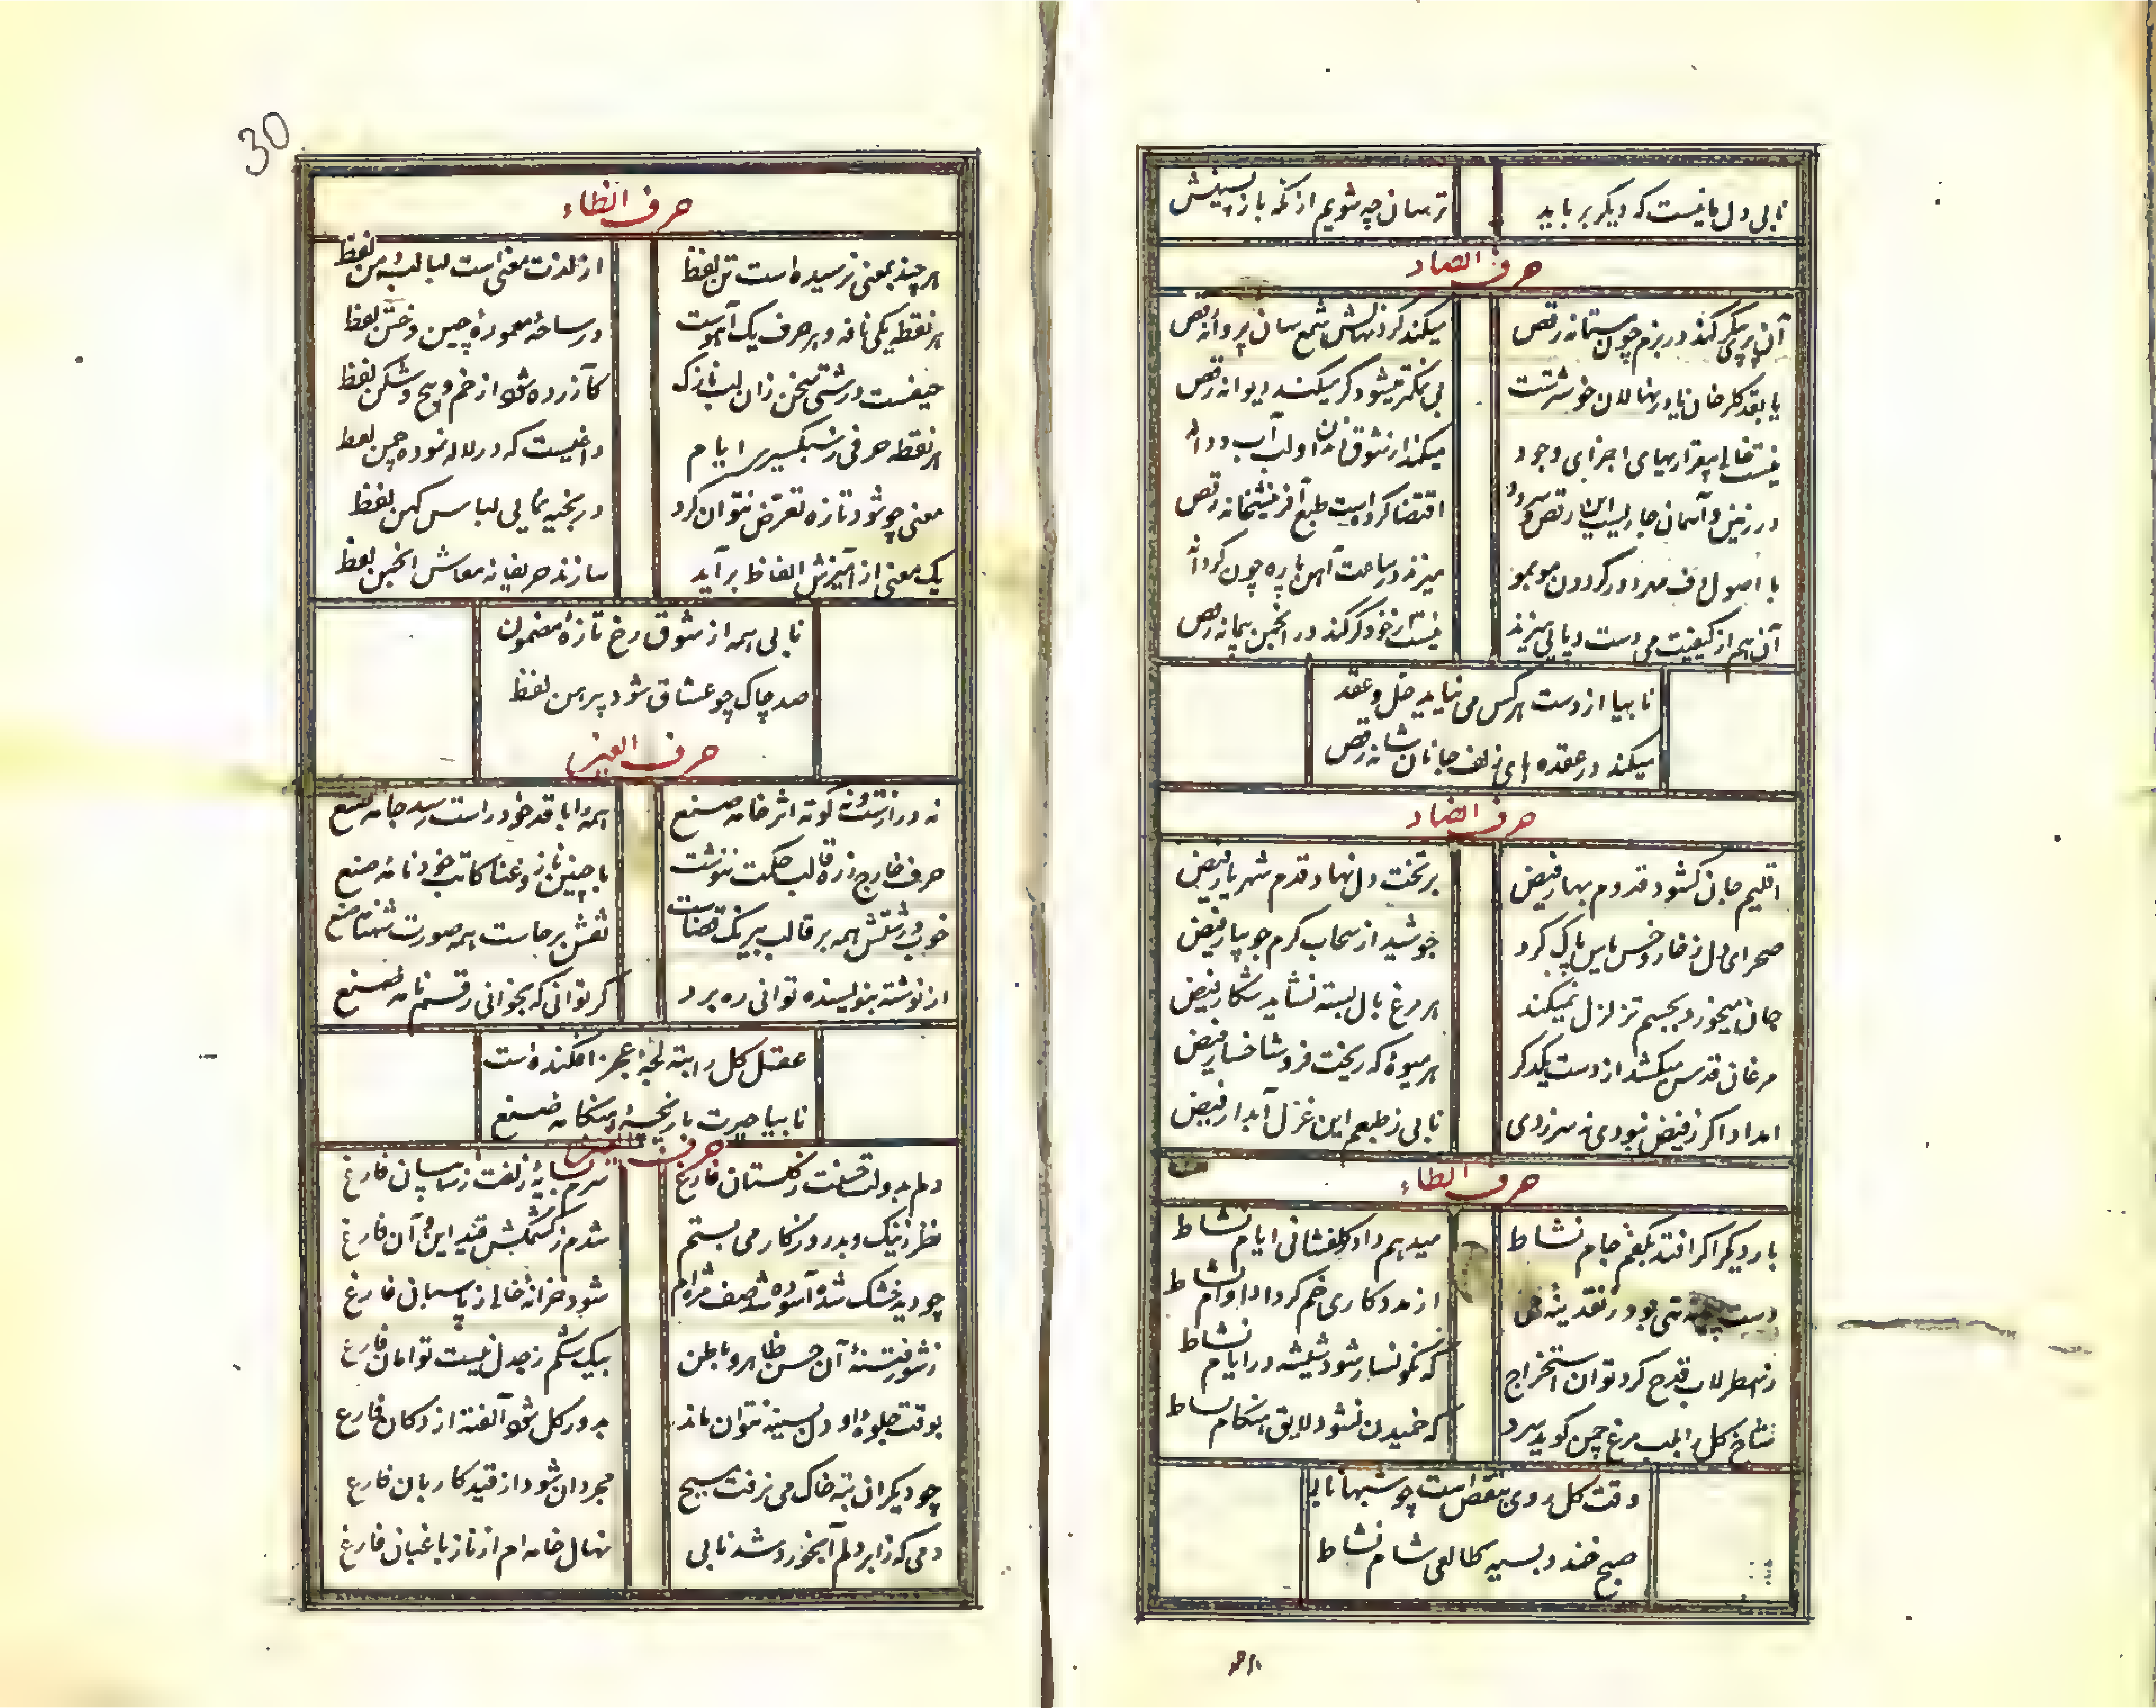 نابی دل ما نیست که دیگر برباید
ترسان چه شویم از نگه بازپسینش
حرف الصاد
آن پری پیکر کند در بزم چون مستانه رقص
میکند کرد نهالش شمع سان پروانه رقص
با بقد گلرخان یا در نهالان خوشترست
بی تکبر میشود گر میکند دیوانه رقص
نیست خالی بیقراریهای اجزای وجود
میکند از شوق او لب آب و دانه
در زمین و آسمان جاریست این رقص
اقتضا کرده است طبع آفرینشخانه رقص
با اصول دف مه در دور گردون موبمو
میزند در ساحت آهن پاره چون
آن هم از کیفیت می دست و پایی میزند
نیست از خود گر کند در انجمن پیمانه رقص
نابیا از دست هر کس می نیاید حل و عقد
میکند در عقده های زلف جانان شانه رقص
حرف الضاد
اقلیم جان کشود قدوم بهار فیض
بر تخت دل نهاد قدم شهریار فیض
صحرای دل ز خار و خس یاس پاک کرد
جوشید از سحاب کرم جویبار فیض
جان میخورد بجسم تزلزل نمیکند
هر مرغ بال بسته نشاید شکار فیض
مرغان قدس میکشد از دست یکدگر
هر میوهٔ که ریخت فرو شاخسار فیض
امداد اگر ز فیض نبودی نه سرزدی
نابی ز طبعم این غزل آبدار فیض
حرف الطاء
بار دیگر اگر افتد بکفم جام نشاط
میدهم داد گلفشانی ایام نشاط
تهی بود ز نقدینهٔ
از مددکاری خم کرد ادا وام نشاط
ز اسطرلاب قدح کرد توان استخراج
که نگونسار شود شیشه در ایام نشاط
شاخ گل را بلب مرغ چمن گوید سرد
که خمیدن نشود لایق هنگام نشاط
وقت گل روی نقص است چو شبها نابی
صبح خندد بسیه طالعی شام نشاط
30
حرف الظاء
هر چند بمعنی نرسیده است تن لفظ
از لذت معنی است لبالب دهن لفظ
هر نقطه یکی نافه و هر حرف یک آهوست
در ساحهٔ معمورهٔ چین و ختن لفظ
حیفست درشتی سخن زان لب نازک
کآزرده شود از خم و پیچ و شکن لفظ
هر نقطه حرفی ز سبکسیری ایام
داغیست که در لاله نموده چمن لفظ
معنی چو شود تازه تعرض نتوان کرد
در بخیه نمایی لباس کهن لفظ
یک معنی از آمیزش الفاظ برآید
سازند حریفانه معاش انجمن لفظ
نابی همه از شوق رخ تازهٔ مضمون
صد چاک چو عشاق شود پیرهن لفظ
حرف العین
نه درازست و نه کوته اثر خامه صنع
همه را با قد خود راست رسد جامه صنع
حرف خارج ز ره قالب حکمت ننوشت
با چنین ناز و غنا کاتب خود نامه صنع
خوب و زشتش همه بر قالب بیرنگ قضاست
نقش برجاست همه صورت شهنامه صنع
از نوشته بنویسنده توانی ره برد
گر توانی که بخوانی رقم نامه صنع
عقل کل را بته لجه عجز افکنده است
نابیا حیرت بازیچهٔ هنگامه صنع
حرف الغین
دلم بدولت ز گلستان فارغ
سرم بسایهٔ زلفت ز سایبان فارغ
نظر ز نیک و بد روزگار می بستم
شدم ز کشمکش قید این و آن فارغ
چو دیده خشک شد آسوده شد صف مژه ام
شود خزانهٔ خالی ز پاسبان فارغ
ز شور فتنهٔ آن حسن ظاهر و باطن
بیک شکم ز جدل نیست توامان فارغ
بوقت جلوهٔ او دل بسینه نتوان ماند
بدور گل شود آلفته از دکان فارغ
چو دیگران بته خاک می نرفت مسیح
مجردان شود از قید کاربان فارغ
دمی که ز ابر دلم آبخورد شد نابی
نهال خامه ام از ناز باغبان فارغ